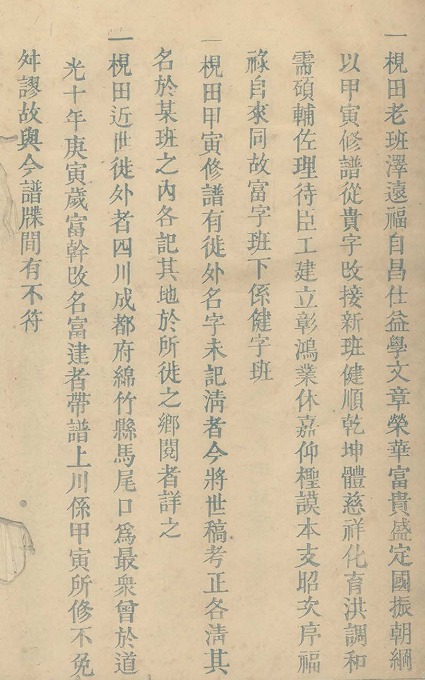 一梘田老班澤遠福自昌仕益學文章榮華富貴盛定國振朝綱
以甲寅修譜從貴字改接新班健順乾坤體慈祥化育洪調和
需碩輔佐理待臣工建立彰鴻業休嘉仰樫謨本支昭次序福
祿自來同故富字班下係健字班
一梘田甲寅修譜有徙外名字未記淸者今將世稿考正各淸其
名於某班之內各記其地於所徙之鄉閱者詳之
一梘田近世徙外者四川成都府綿竹縣馬尾口爲最衆曾於道
光十年庚寅歲富幹改名富建者帶譜上川係甲寅所修不免
舛謬故與今譜牒間有不符